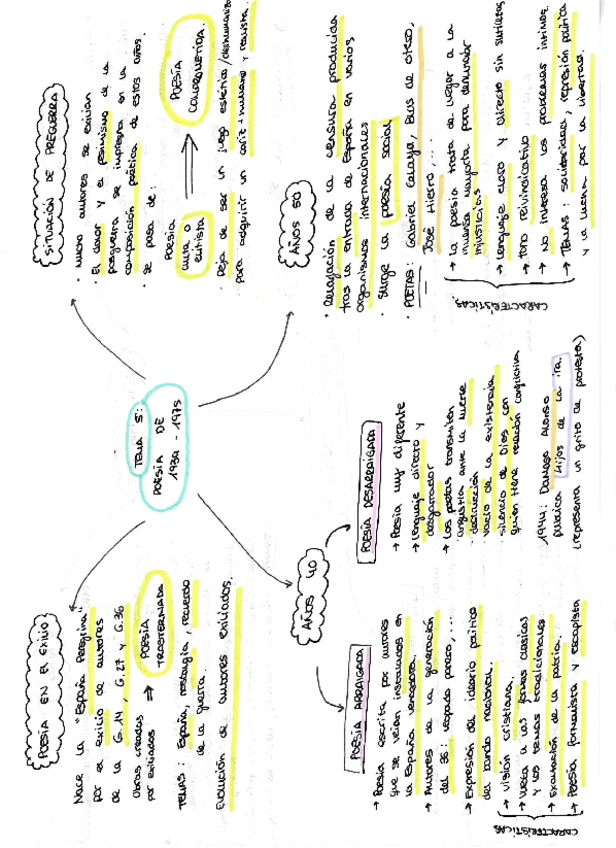 TEMA 5:
POESÍA DE
1939 - 1975
POESÍA EN EL EXILIO
Nace la "España Peregrina"
por el exilio de autores
de la G.14, G.27 y G.36
Obras creadas
por exiliados ⇒ POESÍA
TRASTERRADA
TEMAS: España, nostalgia, recuerdo
de la guerra.
Evolución de autores exiliados.
SITUACIÓN DE PREGUERRA
· Mucho autores se exilian
· El dolor y el pesimismo de la
posguerra se impregna en la
composición poética de estos años.
· Se pasa de:
POESÍA
culta o
elitista
⇒ POESÍA
COMPROMETIDA.
· Deja de ser un juego estético/deshumanizado
para adquirir un cariz + humano y realista.
AÑOS 40
POESÍA ARRAIGADA
→ Poesía escrita por autores
que se veían instalados en
la España vencedora.
→ Autores de la generación
del 36: Leopoldo Panero,...
→ Expresión del ideario político
del bando nacional.
CARACTERÍSTICAS
→ Visión cristiana.
→ Vuelta a las formas clásicas
y los temas tradicionales
→ Exaltación de la patria.
→ Poesía formalista y escapista
POESÍA DESARRAIGADA
→ Poesía muy diferente
→ Lenguaje directo y
desgarrador
→ Los poetas transmiten
angustia ante la muerte
· destrucción
· vacío de la existencia
· silencio de Dios con
quien tiene relación conflictiva
1944: Dámaso Alonso
publica Hijos de la ira.
(representa un grito de protesta)
AÑOS 50
· Relajación de la censura producida
tras la entrada de España en varios
organismos internacionales
· Surge la poesía social
· POETAS: Gabriel Celaya, Blas de Otero,
José Hierro,...
CARACTERÍSTICAS
→ La poesía trata de llegar a la
inmensa mayoría para denunciar
injusticias
→ Lenguaje claro y directo sin sutilezas
→ Tono reivindicativo
→ No interesa los problemas íntimos.
→ TEMAS: solidaridad, represión política
y la lucha por la libertad.